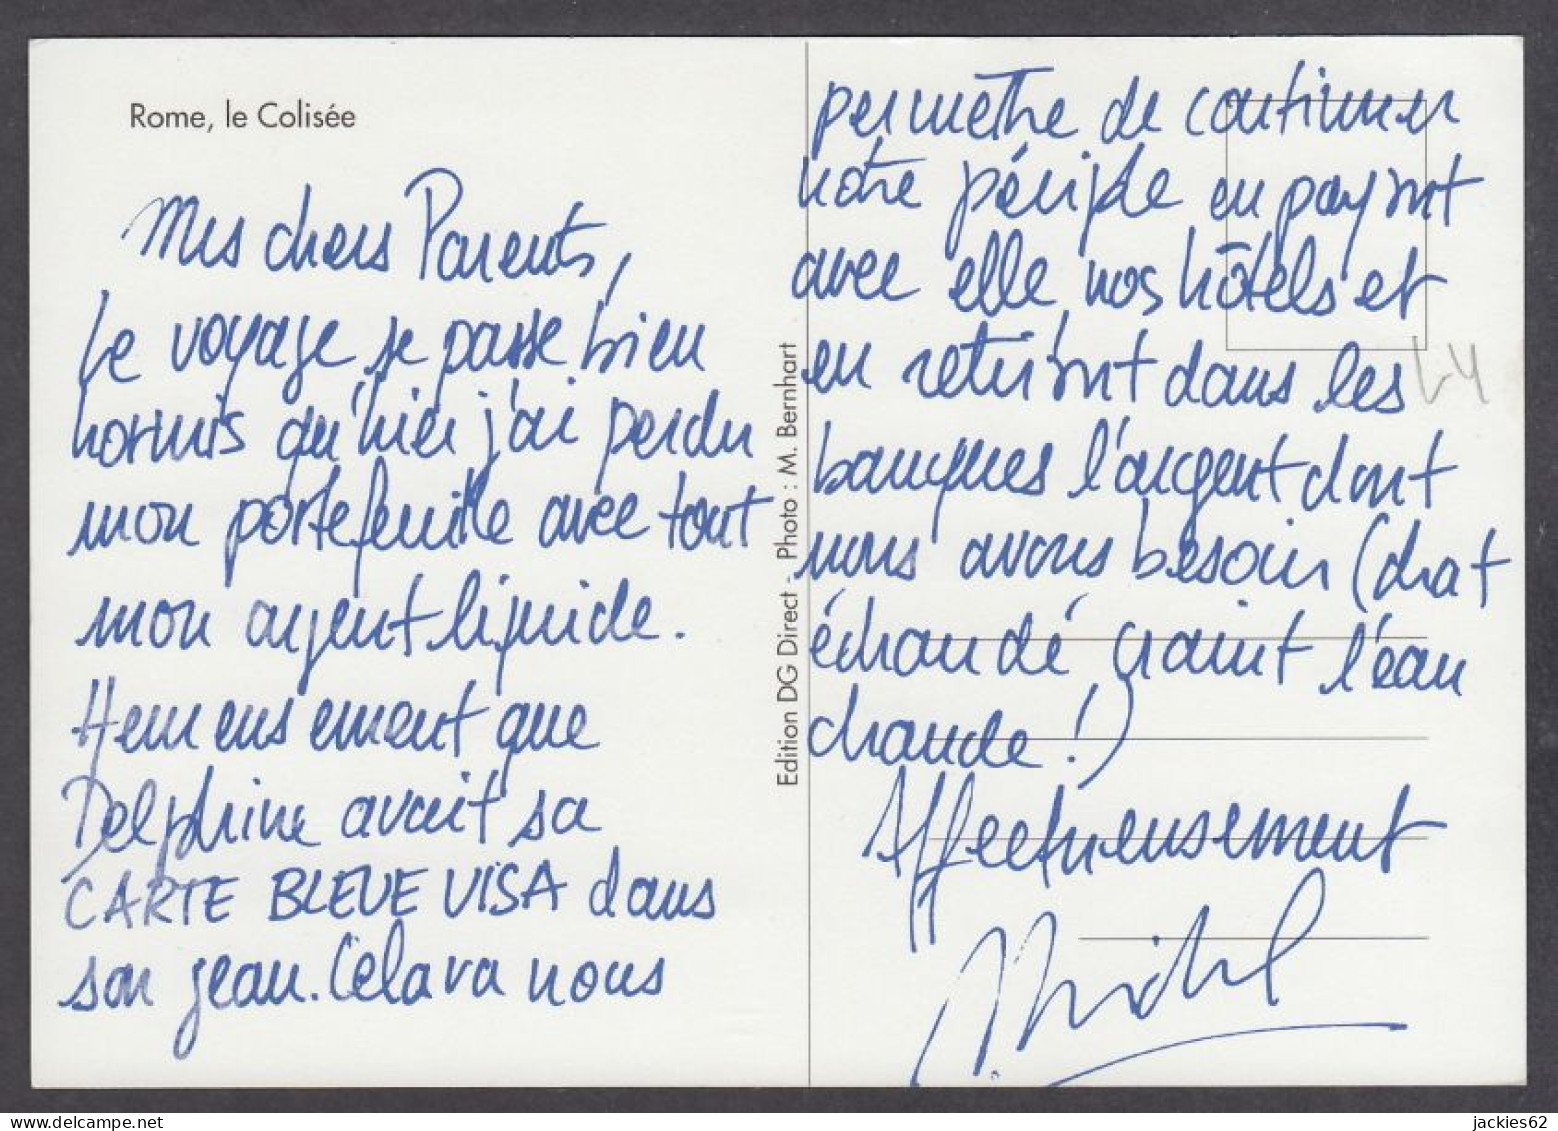 Rome, le Colisée
Mes chers Parents,
Le voyage se passe bien
hormis qu'hier j'ai perdu
mon portefeuille avec tout
mon argent liquide.
Heureusement que
Delphine avait sa
CARTE BLEUE VISA dans
son jean. Cela va nous
Edition DG Direct - Photo : M. Bernhart
permettre de continuer
notre périple en payant
avec elle nos hôtels et
en retirant dans les
banques l'argent dont
nous avons besoin (chat
échaudé craint l'eau
chaude !)
Affectueusement
Michel
L4
jackies62